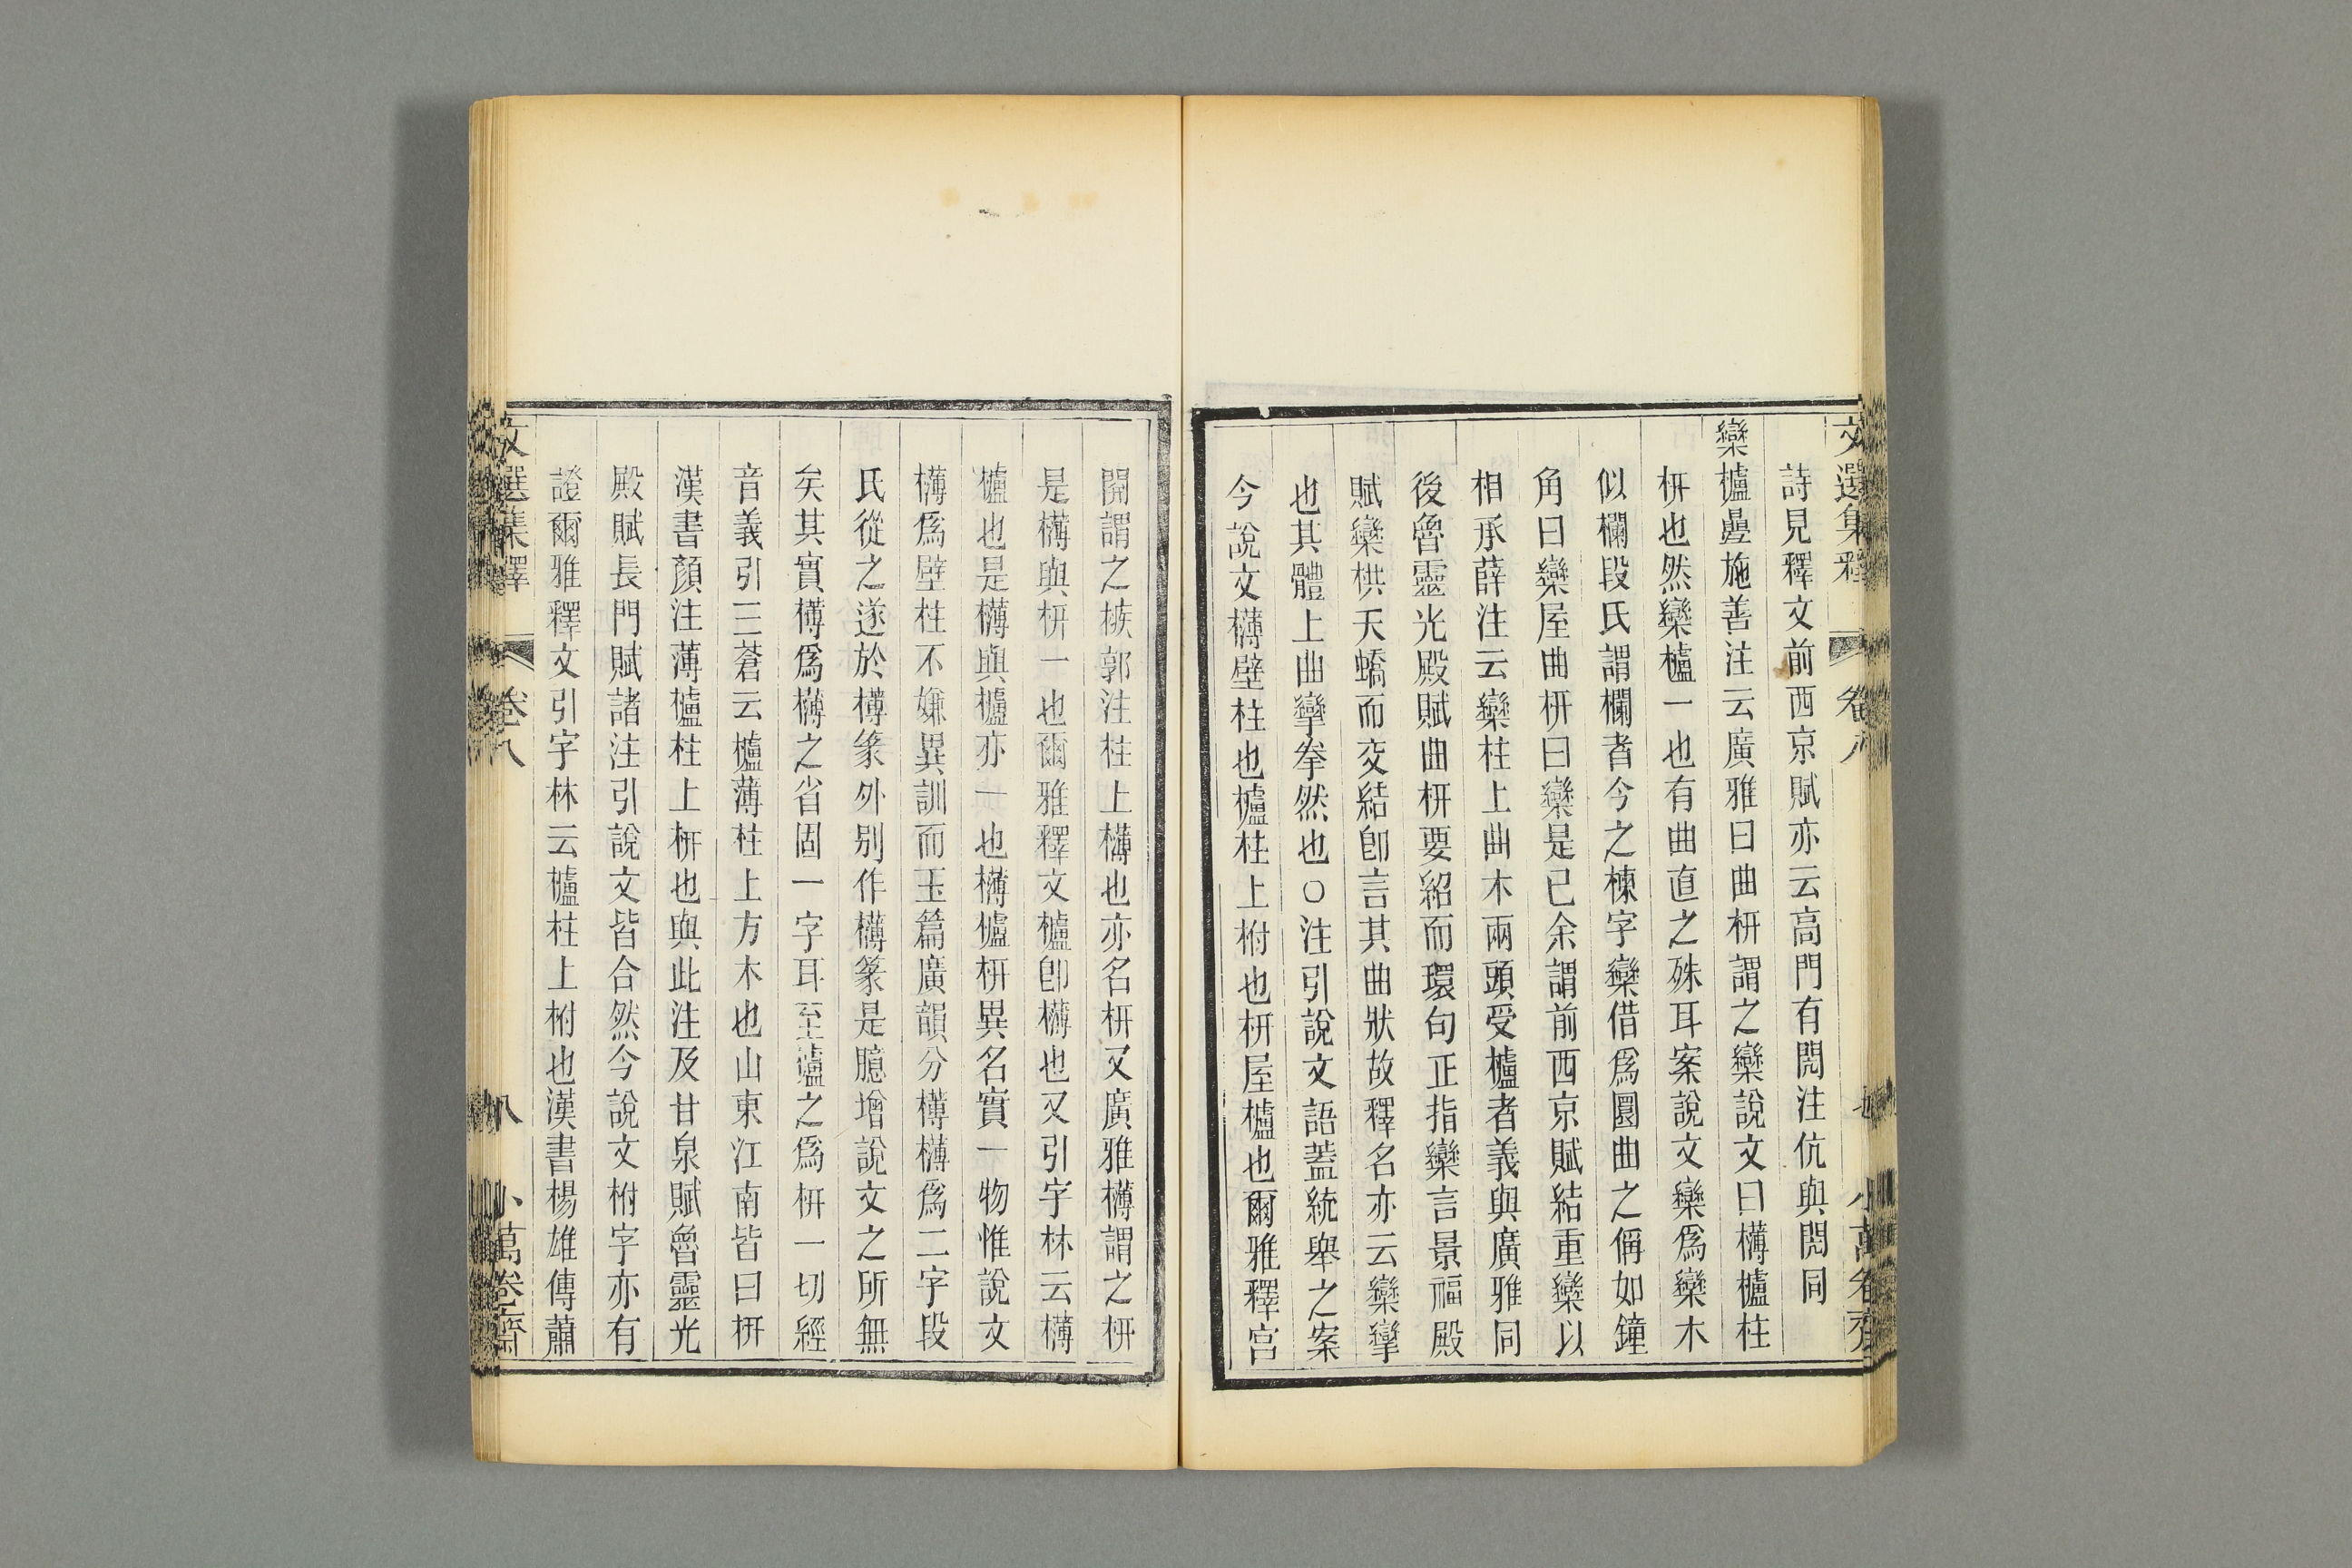 文選集釋 卷八 小萬卷齋
詩見釋文前西京賦亦云高門有閌注伉與閌同
欒櫨疊施善注云廣雅曰曲枅謂之欒說文曰欂櫨柱
枅也然欒櫨一也有曲直之殊耳案說文欒爲欒木
似欄段氏謂欄者今之楝字欒借爲圜曲之偁如鐘
角曰欒屋曲枅曰欒是已余謂前西京賦結重欒以
相承薛注云欒柱上曲木兩頭受櫨者義與廣雅同
後魯靈光殿賦曲枅要紹而環句正指欒言景福殿
賦欒栱夭蟜而交結卽言其曲狀故釋名亦云欒攣
也其體上曲攣拳然也○注引說文語蓋統舉之案
今說文欂壁柱也櫨柱上柎也枅屋櫨也爾雅釋宮
開謂之槉郭注柱上欂也亦名枅又廣雅欂謂之枅
是欂與枅一也爾雅釋文櫨卽欂也又引字林云欂
櫨也是欂與櫨亦一也欂櫨枅異名實一物惟說文
欂爲壁柱不嫌異訓而玉篇廣韻分榑欂爲二字段
氏從之遂於榑篆外別作欂篆是臆增說文之所無
矣其實榑爲欂之省固一字耳至櫨之爲枅一切經
音義引三蒼云櫨薄柱上方木也山東江南皆曰枅
漢書顏注薄櫨柱上枅也與此注及甘泉賦魯靈光
殿賦長門賦諸注引說文皆合然今說文柎字亦有
證爾雅釋文引字林云櫨柱上柎也漢書楊雄傳蕭
文選集釋 卷八 八 小萬卷齋